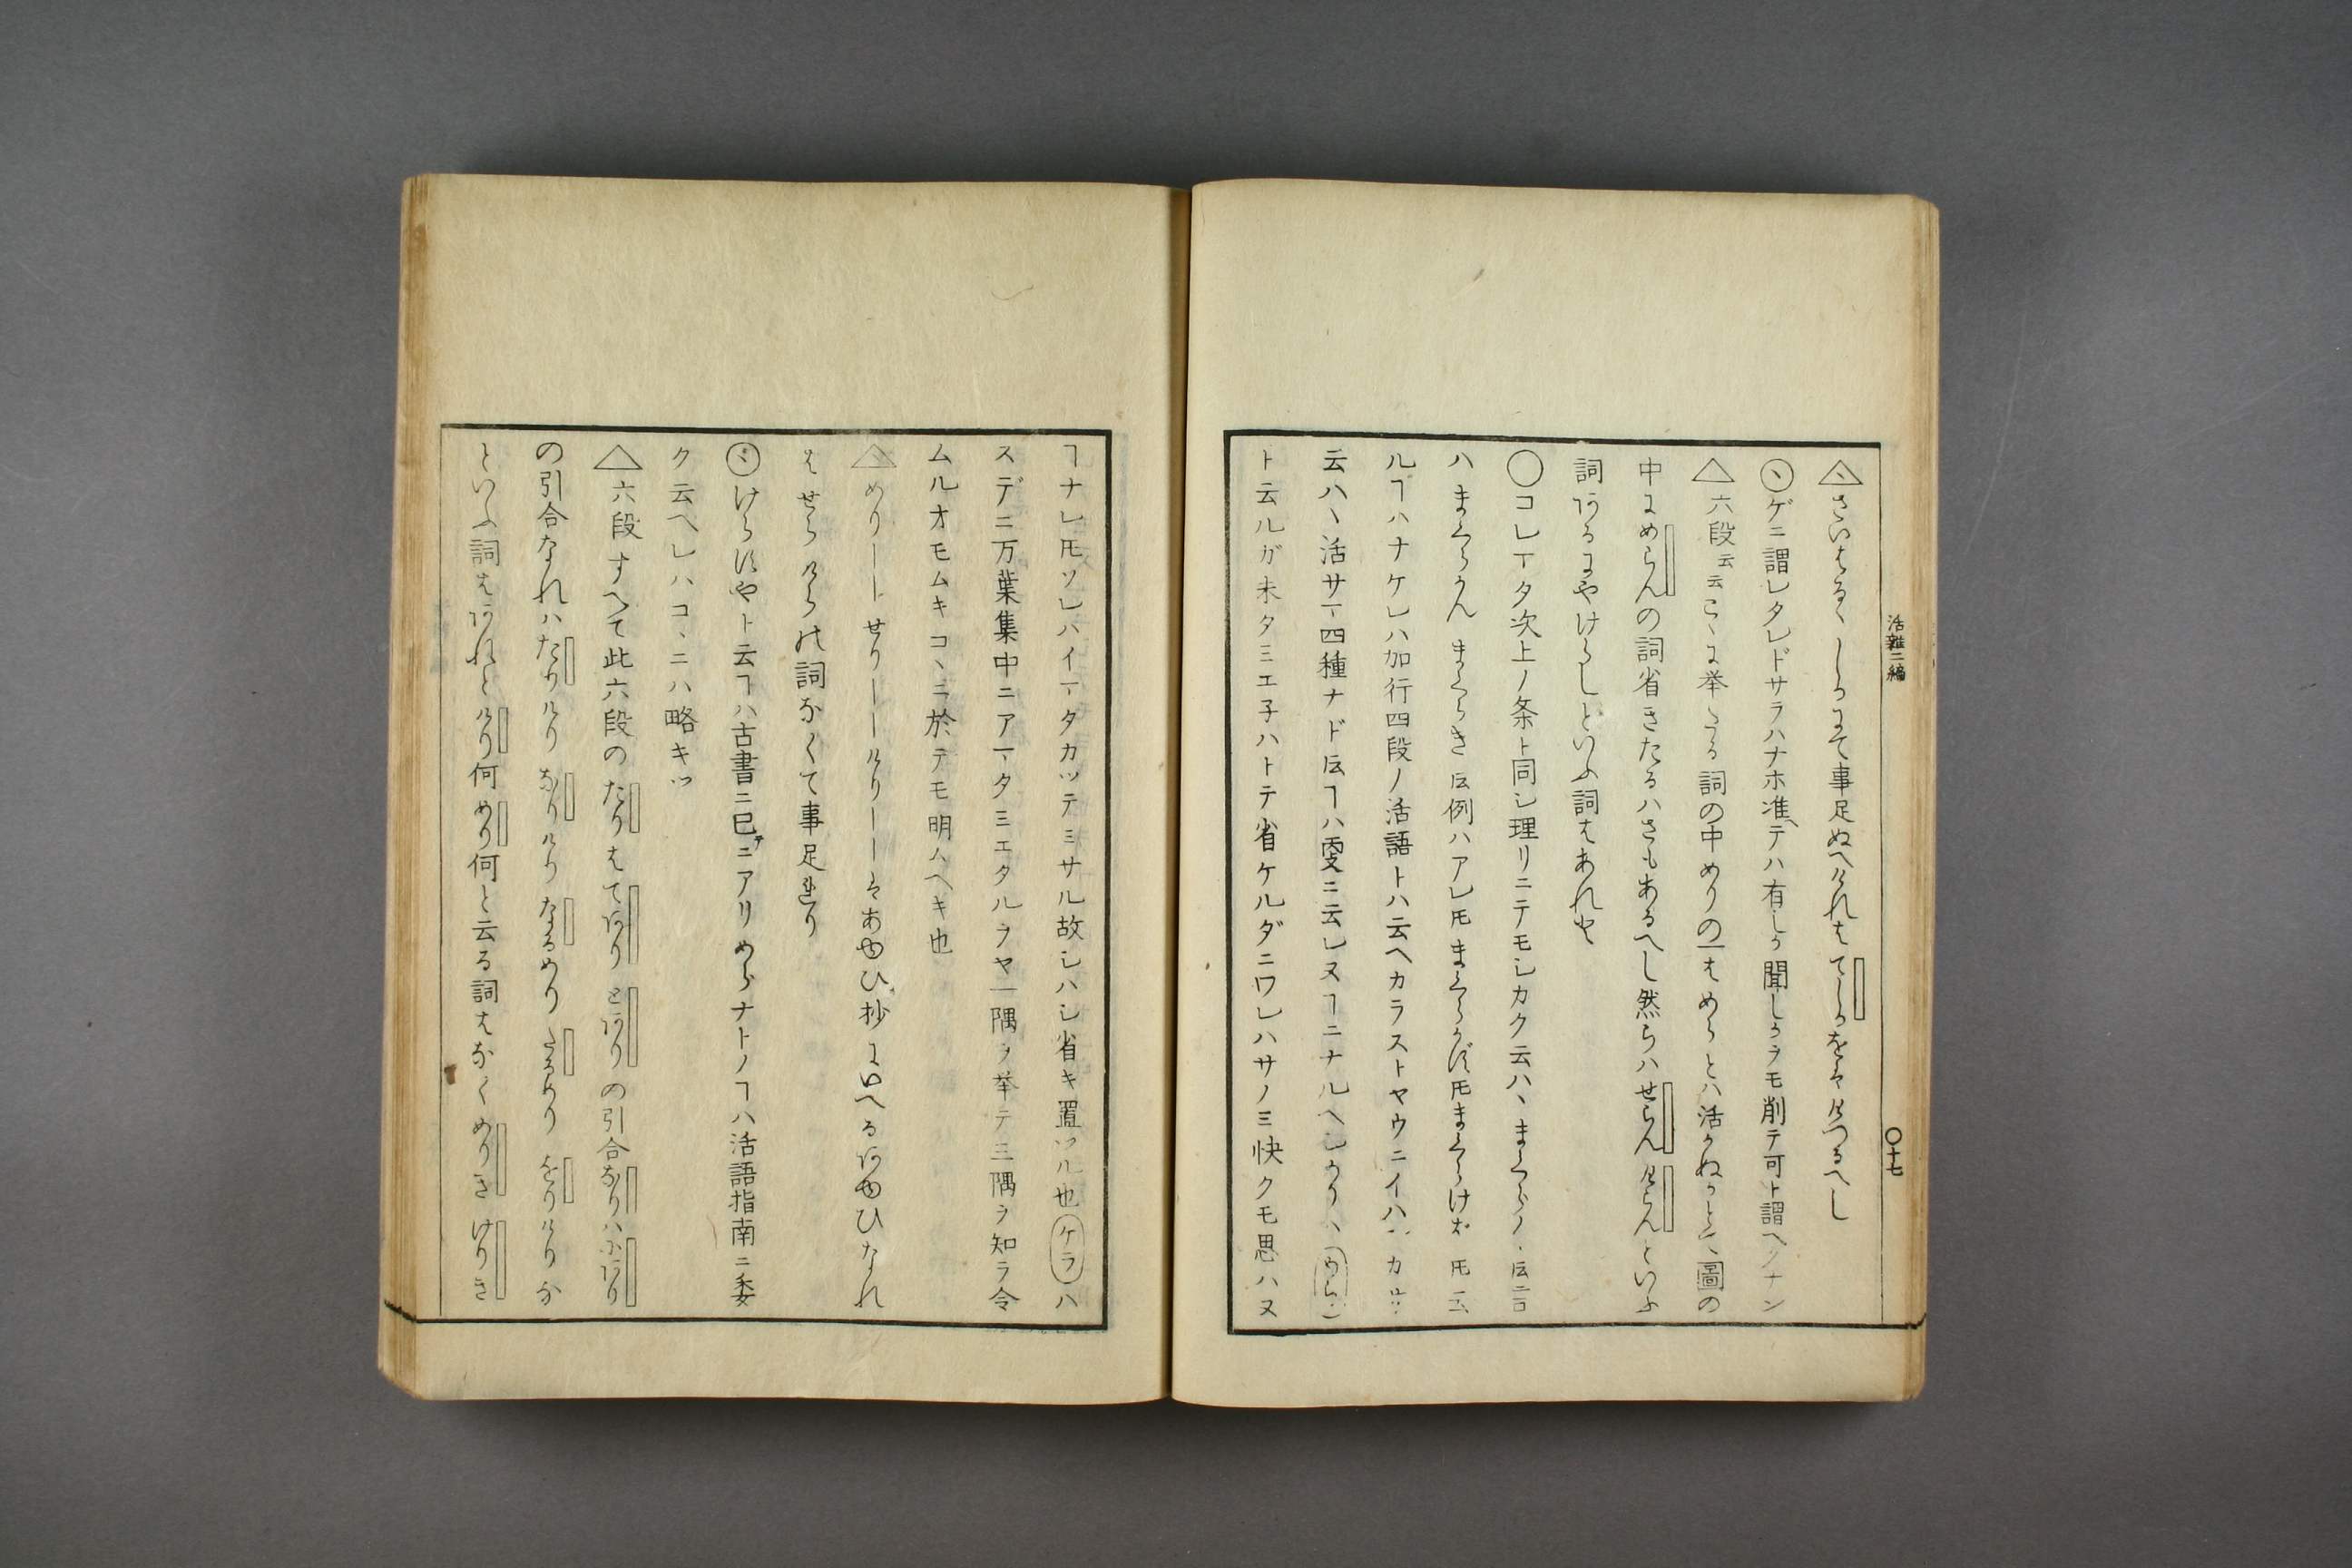 活雜二編
〇十七
さいはるゝしかにて事足ぬへけれはてしかをそけつるへし
ゲニ謂レタレドサラハナホ准ヘテハ有しか聞しかヲモ削テ可ト謂ヘクナン
△六段云云こゝに挙たる詞の中めりの一はめらとハ活かぬか 圖の
中にめらんの詞省きたるハさもあるへし然らハせらんけらんといふ
詞あるにやけらしといふ詞はあれと
〇コレヿタ次上ノ条ト同し理リニテモしカク云ハヽまくら
ハまくらかん まくらき 例ハアレ𪜈まくらかば𪜈まくらけば𪜈
ルヿハナケレハ加行四段ノ活語トハ云ヘカラストヤウニイハ
云ハヽ活サマ四種ナド云ヿハ更ニ云レヌヿニナルヘし
ト云ルガ未タミエ子ハトテ省ケルダニワレハサノミ快クモ思ハヌ
ヿナレ𪜈ソレハイマタカツテミサル故しハし省キ置ツル也ケラハ
スデニ万葉集中ニアマタミエタルヲヤ一隅ヲ挙テ三隅ヲ知ラ令
ムルオモムキコヽニ於テモ明ムヘキ也
めり｜｜せり｜｜けり｜｜そあゆひ抄にいへるあゆひなれ
はせらけらの詞なくて事足れり
けらずやト云ヿハ古書ニ已テニアリめらナトノヿハ活語指南ニ委
ク云ヘレハコヽニハ略キツ
△六段すへて此六段のたりはてありとありの引合なりハにあり
の引合なれハたりけりなりけりなるめりたるめりをりけりか
といふ詞はあれとけり何めり何と云る詞はなくめりきけりき